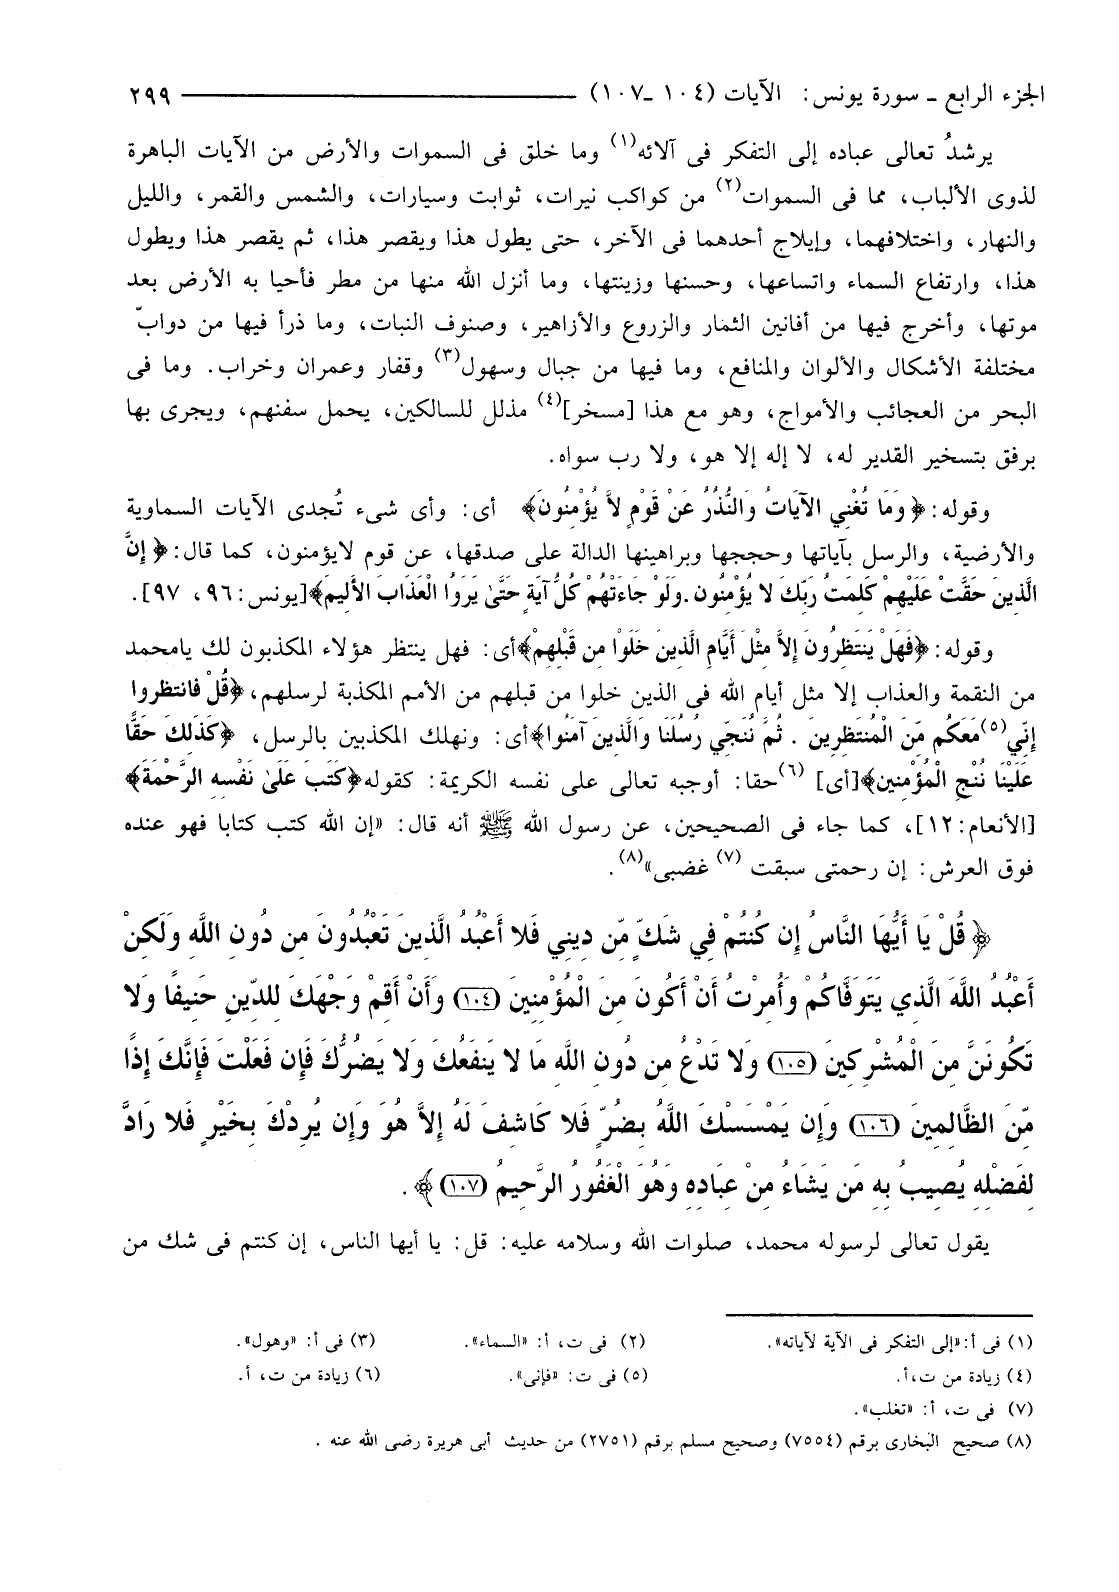 الجزء الرابع ـ سورة يونس: الآيات (١٠٤ ـ ١٠٧) ٢٩٩
يرشدُ تعالى عباده إلى التفكر فى آلائه(١) وما خلق فى السموات والأرض من الآيات الباهرة
لذوى الألباب، مما فى السموات(٢) من كواكب نيرات، ثوابت وسيارات، والشمس والقمر، والليل
والنهار، واختلافهما، وإيلاج أحدهما فى الآخر، حتى يطول هذا ويقصر هذا، ثم يقصر هذا ويطول
هذا، وارتفاع السماء واتساعها، وحسنها وزينتها، وما أنزل الله منها من مطر فأحيا به الأرض بعد
موتها، وأخرج فيها من أفانين الثمار والزروع والأزاهير، وصنوف النبات، وما ذرأ فيها من دوابّ
مختلفة الأشكال والألوان والمنافع، وما فيها من جبال وسهول(٣) وقفار وعمران وخراب. وما فى
البحر من العجائب والأمواج، وهو مع هذا [مسخر](٤) مذلل للسالكين، يحمل سفنهم، ويجرى بها
برفق بتسخير القدير له، لا إله إلا هو، ولا رب سواه.
وقوله: ﴿وَمَا تُغْنِي الآيَاتُ وَالنُّذُرُ عَنْ قَوْمٍ لاَّ يُؤْمِنُونَ﴾ أى: وأى شىء تُجدى الآيات السماوية
والأرضية، والرسل بآياتها وحججها وبراهينها الدالة على صدقها، عن قوم لايؤمنون، كما قال: ﴿إِنَّ
الَّذِينَ حَقَّتْ عَلَيْهِمْ كَلِمَتُ رَبِّكَ لا يُؤْمِنُون . وَلَوْ جَاءَتْهُمْ كُلُّ آيَةٍ حَتَّىٰ يَرَوُا الْعَذَابَ الأَلِيمَ﴾[يونس:٩٦، ٩٧].
وقوله: ﴿فَهَلْ يَنتَظِرُونَ إِلاَّ مِثْلَ أَيَّامِ الَّذِينَ خَلَوْا مِن قَبْلِهِمْ﴾أى: فهل ينتظر هؤلاء المكذبون لك يامحمد
من النقمة والعذاب إلا مثل أيام الله فى الذين خلوا من قبلهم من الأمم المكذبة لرسلهم، ﴿قُلْ فَانتَظِروا
إِنِّي(٥)مَعَكُم مِّنَ الْمُنتَظِرِينَ . ثُمَّ نُنَجِّي رُسُلَنَا وَالَّذِينَ آمَنُوا﴾أى: ونهلك المكذبين بالرسل، ﴿كَذَلِكَ حَقًّا
عَلَيْنَا نُنجِ الْمُؤْمِنِين﴾[أى] (٦)حقا: أوجبه تعالى على نفسه الكريمة: كقوله﴿كَتَبَ عَلَىٰ نَفْسِهِ الرَّحْمَةَ﴾
[الأنعام:١٢]، كما جاء فى الصحيحين، عن رسول الله ﷺ أنه قال: «إن الله كتب كتابا فهو عنده
فوق العرش: إن رحمتى سبقت (٧) غضبى»(٨).
﴿قُلْ يَا أَيُّهَا النَّاسُ إِن كُنتُمْ فِي شَكٍّ مِّن دِينِي فَلا أَعْبُدُ الَّذِينَ تَعْبُدُونَ مِن دُونِ اللَّهِ وَلَكِنْ
أَعْبُدُ اللَّهَ الَّذِي يَتَوَفَّاكُمْ وَأُمِرْتُ أَنْ أَكُونَ مِنَ الْمُؤْمِنِينَ (١٠٤) وَأَنْ أَقِمْ وَجْهَكَ لِلدِّينِ حَنِيفًا وَلا
تَكُونَنَّ مِنَ الْمُشْرِكِينَ (١٠٥) وَلا تَدْعُ مِن دُونِ اللَّهِ مَا لا يَنفَعُكَ وَلا يَضُرُّكَ فَإِن فَعَلْتَ فَإِنَّكَ إِذًا
مِّنَ الظَّالِمِينَ (١٠٦) وَإِن يَمْسَسْكَ اللَّهُ بِضُرٍّ فَلا كَاشِفَ لَهُ إِلاَّ هُوَ وَإِن يُرِدْكَ بِخَيْرٍ فَلا رَادَّ
لِفَضْلِهِ يُصِيبُ بِهِ مَن يَشَاءُ مِنْ عِبَادِهِ وَهُوَ الْغَفُورُ الرَّحِيمُ (١٠٧)﴾ .
يقول تعالى لرسوله محمد، صلوات الله وسلامه عليه: قل: يا أيها الناس، إن كنتم فى شك من
(١) فى أ:«إلى التفكر فى الآية لآياته». (٢) فى ت، أ: «السماء». (٣) فى أ: «وهول».
(٤) زيادة من ت،أ. (٥) فى ت: «فإنى». (٦) زيادة من ت، أ.
(٧) فى ت، أ: «تغلب».
(٨) صحيح البخارى برقم (٧٥٥٤) وصحيح مسلم برقم (٢٧٥١) من حديث أبى هريرة رضى الله عنه .